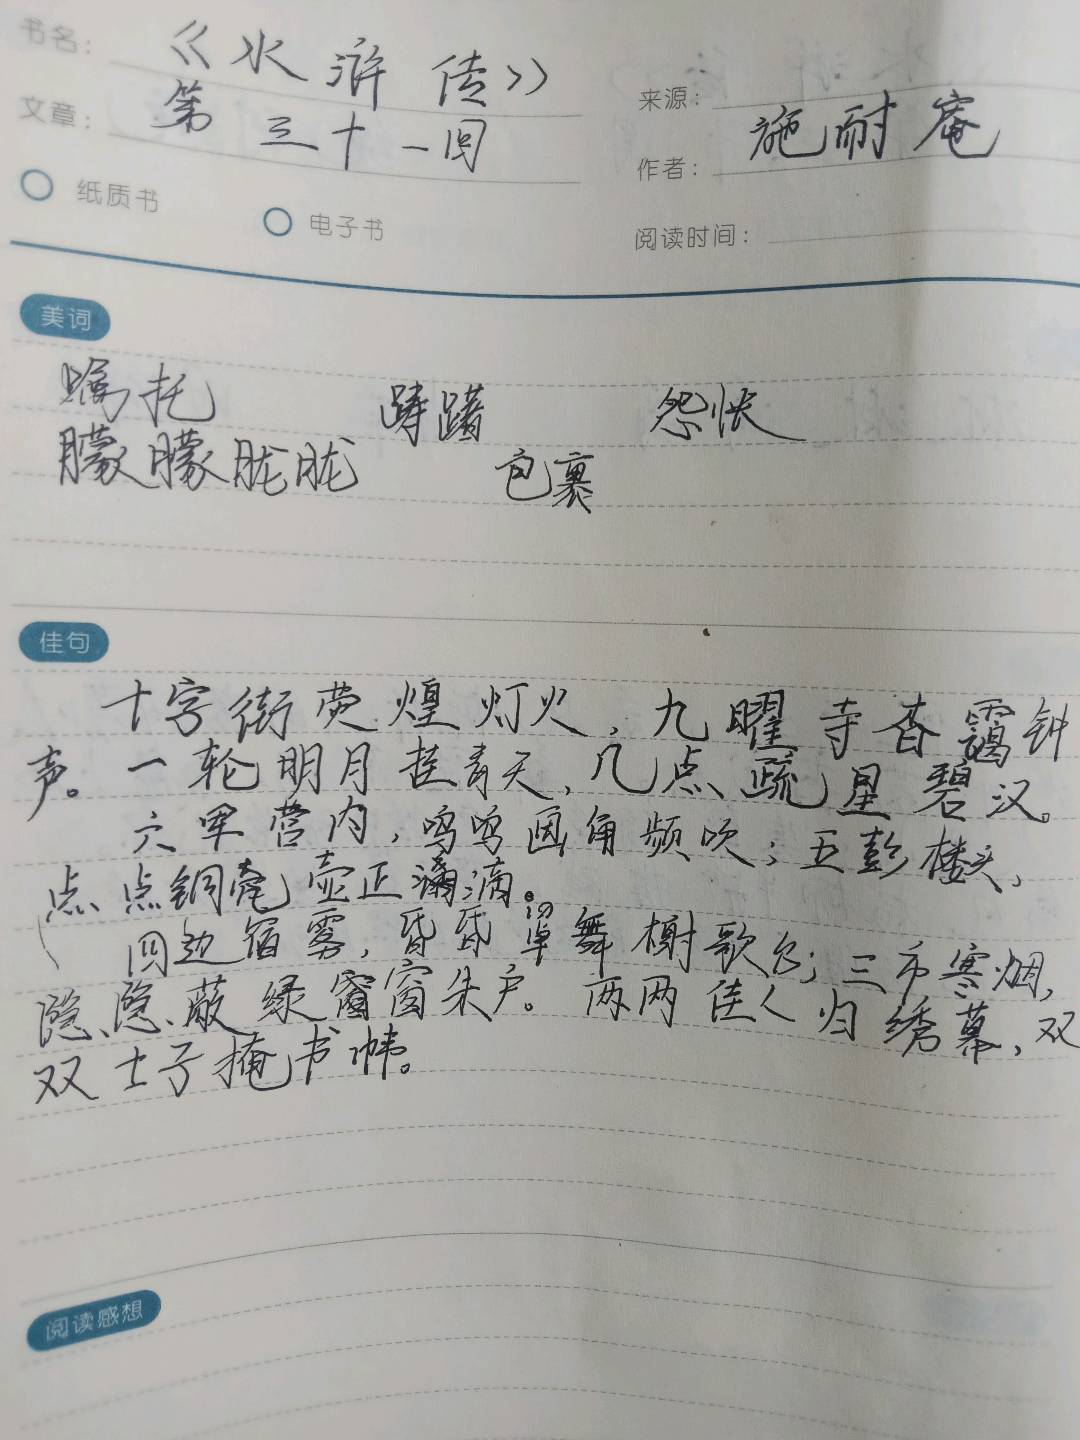 书名：《水浒传》
文章：第三十一回
来源：
作者：施耐庵
纸质书 电子书
阅读时间：
美词
嘱托 踌躇 怨怅
朦朦胧胧 包裹
佳句
十字街荧煌灯火，九曜寺香霭钟
声。一轮明月挂青天，几点疏星碧汉。
六军营内，呜呜画角频吹；五彭楼头，
点点铜壶正滴。
四边宿雾，昏昏罩舞榭歌台；三市寒烟，
隐隐蔽绿窗朱户。两两佳人归绣幕，双
双士子掩书帏。
阅读感想